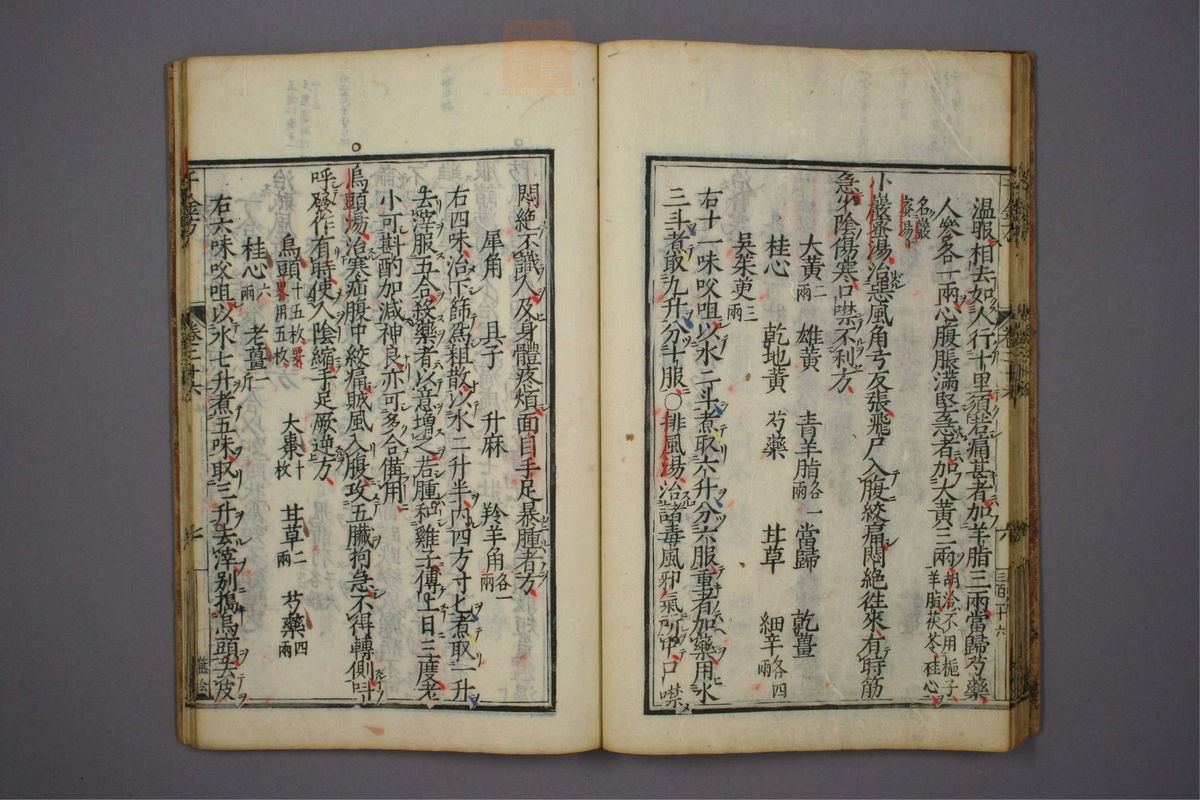 溫服相去如人行十里頃若痛甚者加羊脂三兩當歸芍藥
人參各一兩心腹脹滿堅急者加大黃三兩胡洽不用梔子
羊脂茯苓桂心
名巖
秦湯
小巖蜜湯治惡風角弓反張飛尸入腹絞痛悶絕往來有時筋
急少陰傷寒口噤不利方
大黃二兩 雄黃 青羊脂各一兩 當歸 乾薑
桂心 乾地黃 芍藥 甘草 細辛各四兩
吳茱萸三兩
右十一味㕮咀以水二斗煮取六升分六服重者加藥用水
三斗煮取九升分十服○排風湯治諸毒風邪氣所中口噤
三百二十六
悶絕不識人及身體疼煩面目手足暴腫者方
犀角 貝子 升麻 羚羊角各一兩
右四味治下篩爲粗散以水二升半內四方寸匕煮取一升
去滓服五合殺藥者以意增之若腫和雞子傅上日三度老
小可斟酌加減神良亦可多合備用
烏頭湯治寒疝腹中絞痛賊風入腹攻五臟拘急不得轉側叫
呼發作有時使人陰縮手足厥逆方
烏頭十五枚要用五枚 大棗十枚 甘草二兩 芍藥四兩
桂心六兩 老薑一斤
右六味㕮咀以水七升煮五味取三升去滓別搗烏頭去皮